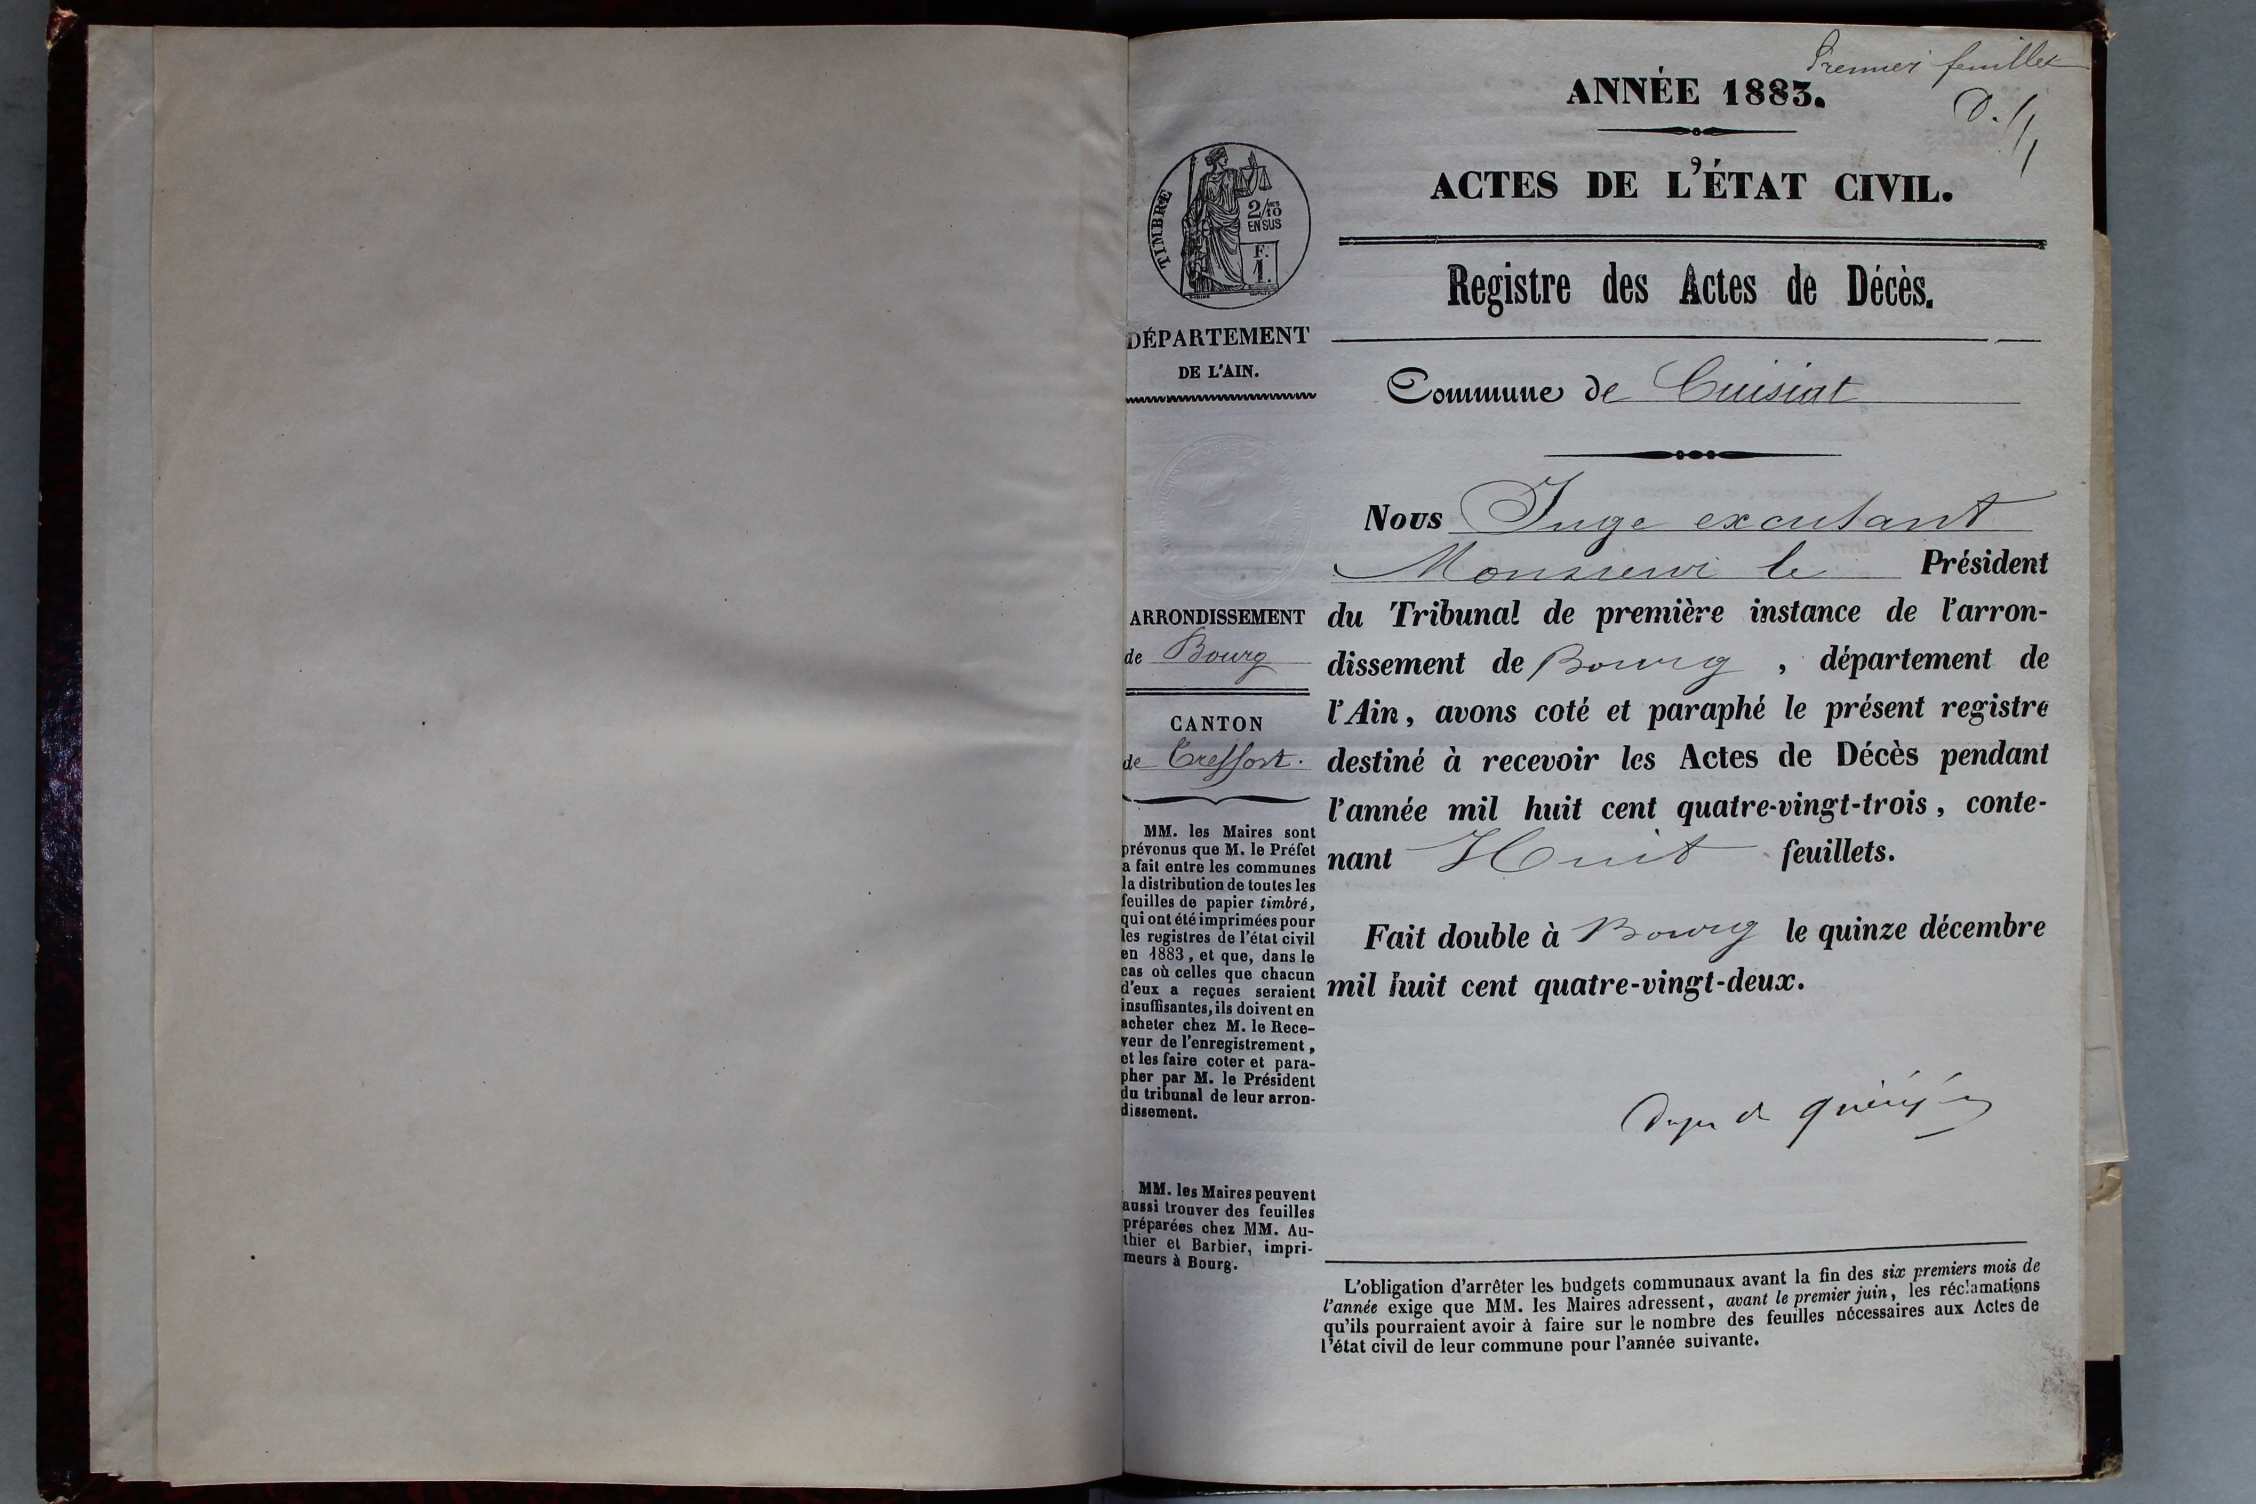 Premier feuillet
ANNÉE 1883.
ACTES DE L'ÉTAT CIVIL.
TIMBRE
2/10 EN SUS
F. 1.
Registre des Actes de Décès.
DÉPARTEMENT
DE L'AIN.
Commune de Cuisiat
Nous Juge excusant
Monsieur le Président
ARRONDISSEMENT
de Bourg
du Tribunal de première instance de l'arron-
dissement de Bourg, département de
l'Ain, avons coté et paraphé le présent registre
destiné à recevoir les Actes de Décès pendant
l'année mil huit cent quatre-vingt-trois, conte-
nant Huit feuillets.
Fait double à Bourg le quinze décembre
mil huit cent quatre-vingt-deux.
CANTON
de Treffort.
MM. les Maires sont
prévenus que M. le Préfet
a fait entre les communes
la distribution de toutes les
feuilles de papier timbré,
qui ont été imprimées pour
les registres de l'état civil
en 1883, et que, dans le
cas où celles que chacun
d'eux a reçues seraient
insuffisantes, ils doivent en
acheter chez M. le Rece-
veur de l'enregistrement,
et les faire coter et para-
pher par M. le Président
du tribunal de leur arron-
dissement.
MM. les Maires peuvent
aussi trouver des feuilles
préparées chez MM. Au-
thier et Barbier, impri-
meurs à Bourg.
L'obligation d'arrêter les budgets communaux avant la fin des six premiers mois de
l'année exige que MM. les Maires adressent, avant le premier juin, les réclamations
qu'ils pourraient avoir à faire sur le nombre des feuilles nécessaires aux Actes de
l'état civil de leur commune pour l'année suivante.